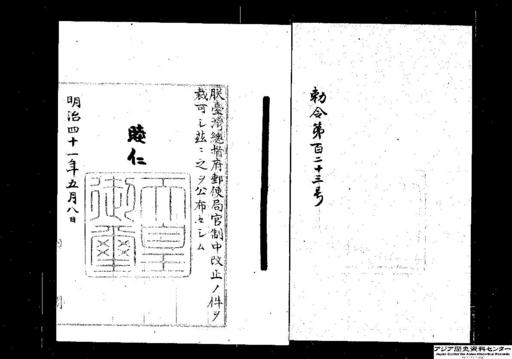 勅令第百二十三号
朕臺灣總督府郵便局官制中改正ノ件ヲ
裁可シ茲ニ之ヲ公布セシム
睦仁
天皇御璽
明治四十一年五月八日
アジア歴史資料センター
Japan Center for Asian Historical Records